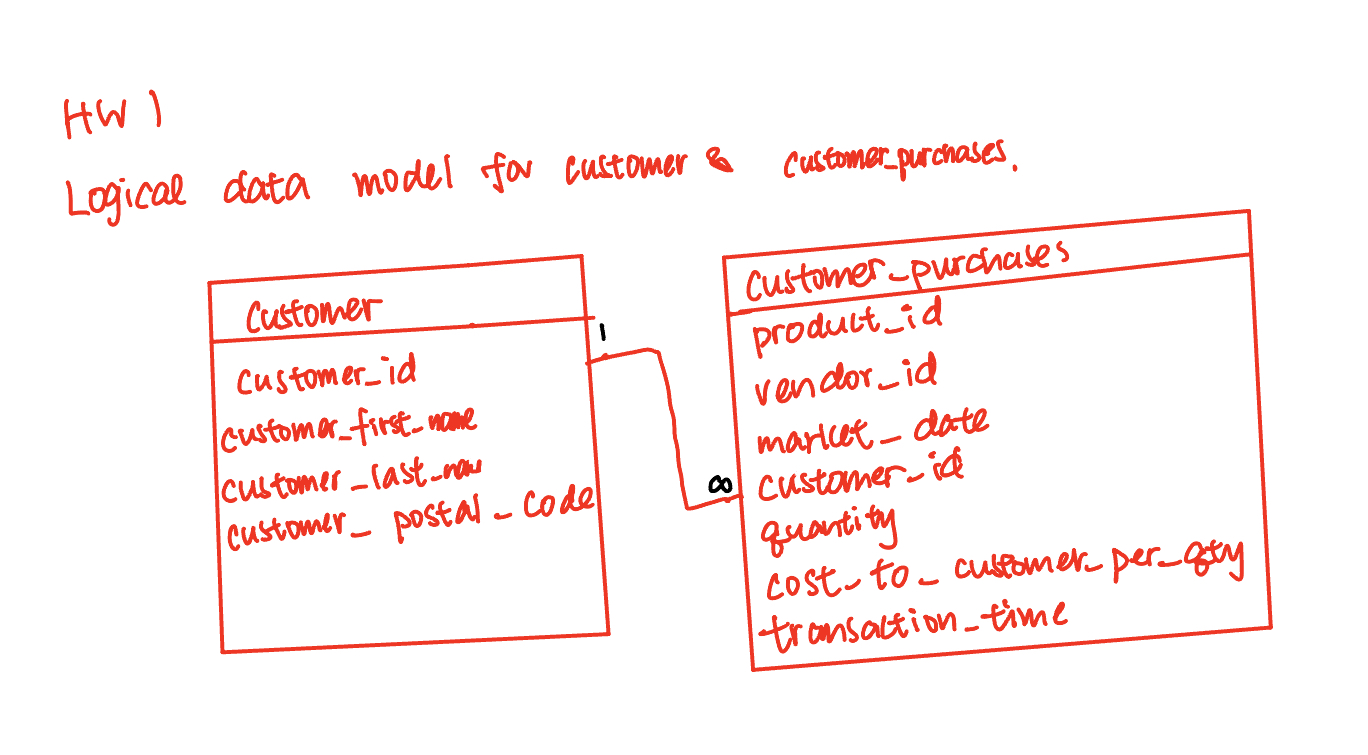 HW 1
Logical data model for customer & customer_purchases.
Customer
customer_id
customer_first_name
customer_last_nam
customer_postal_code
1
∞
Customer_purchases
product_id
vendor_id
market_date
customer_id
quantity
cost_to_customer_per_qty
transaction_time